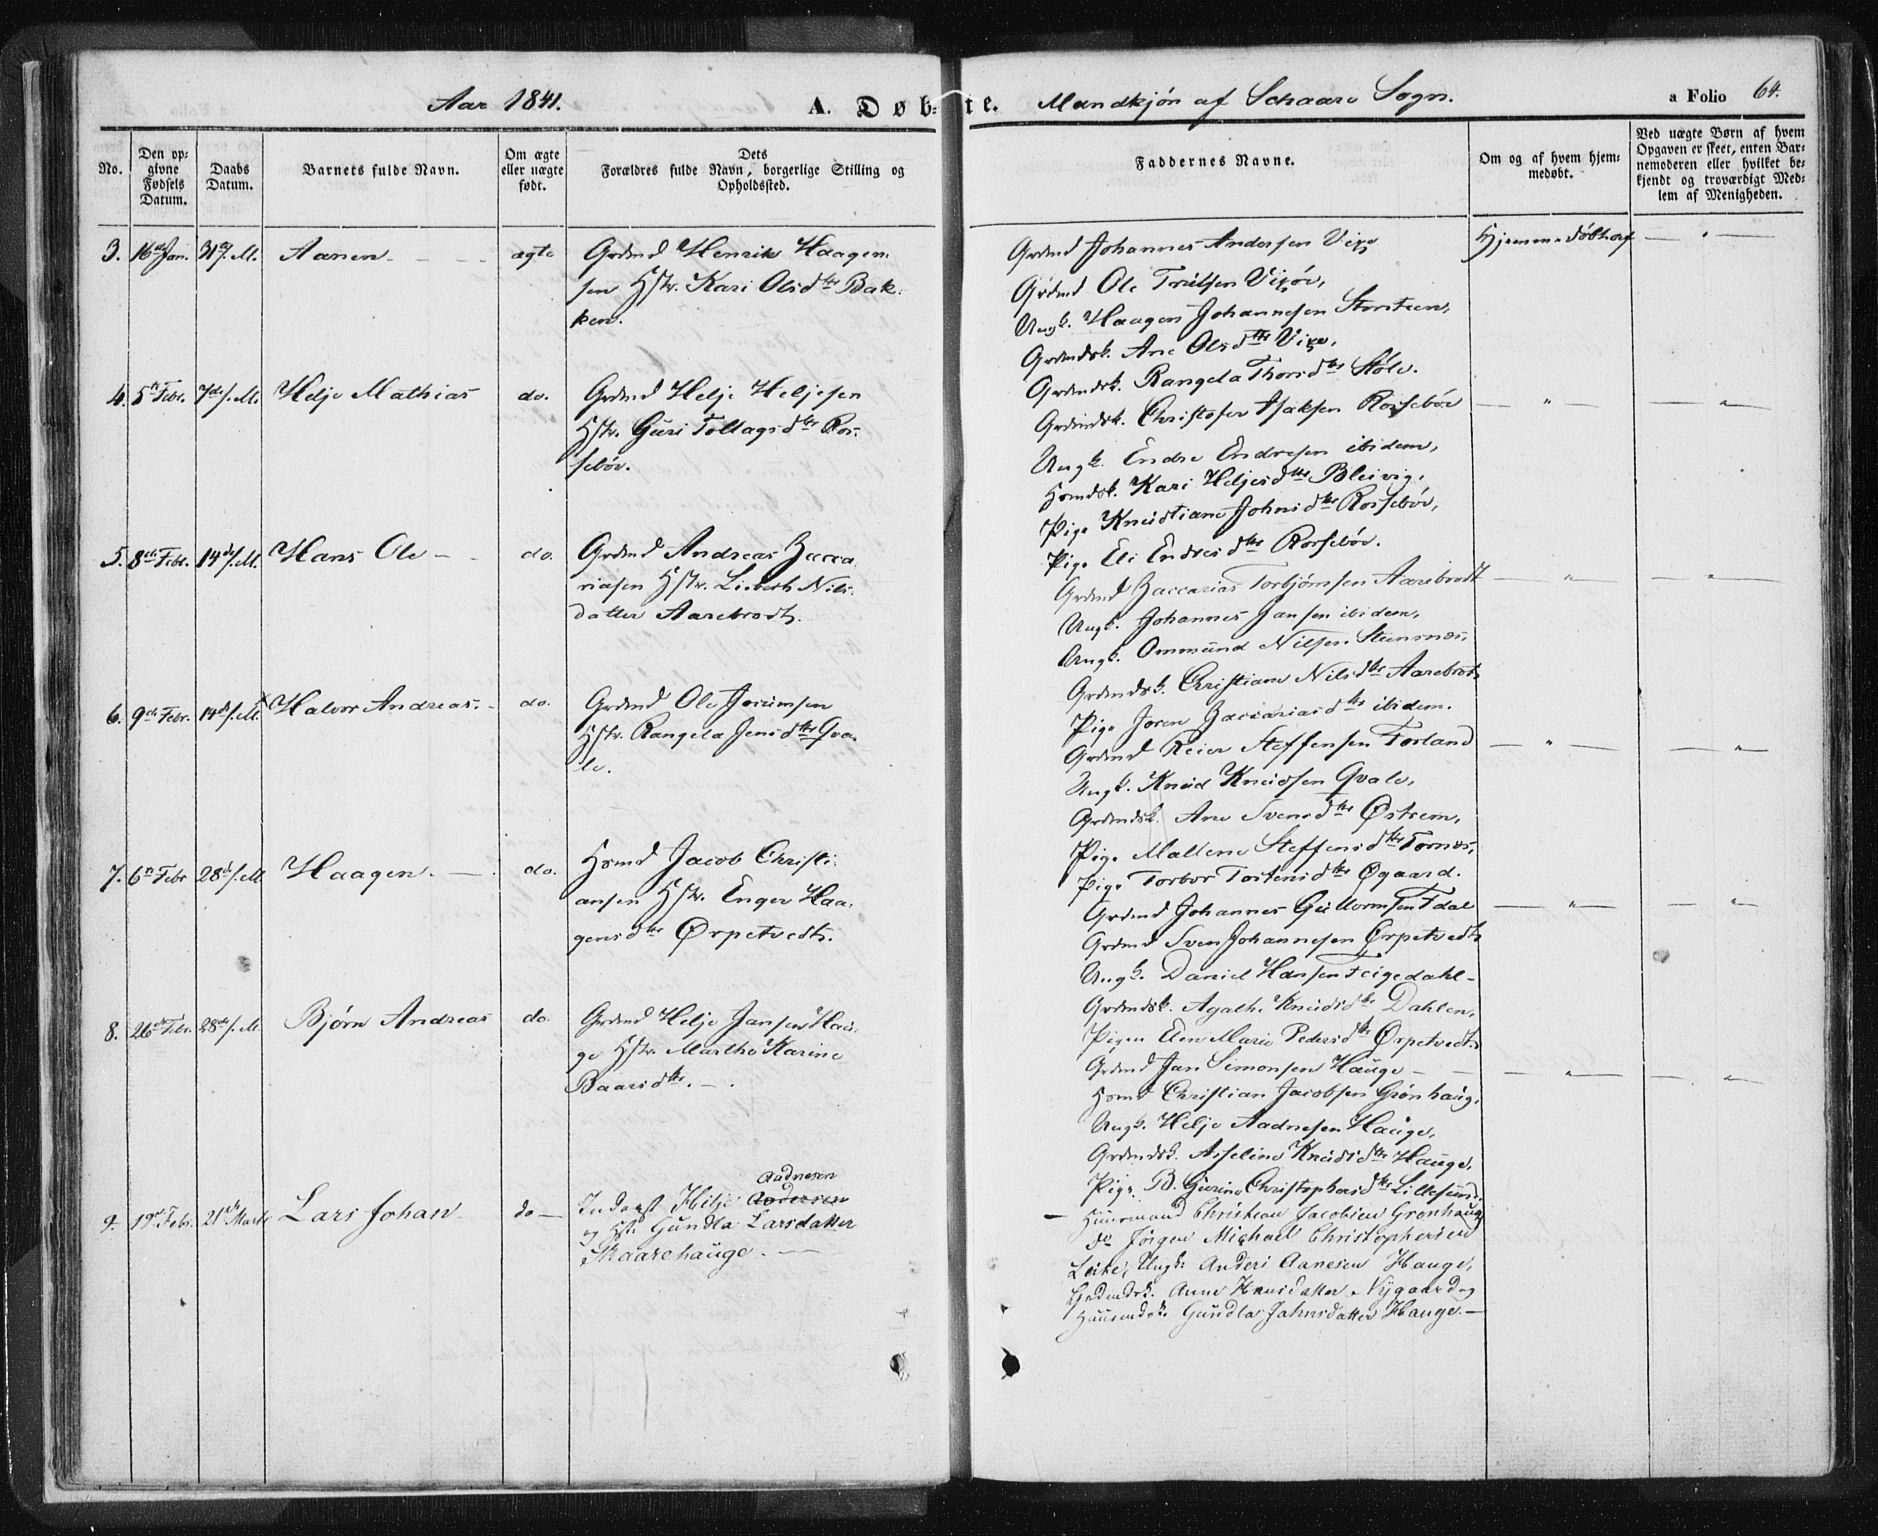 Aar 1841. A. Døb-
te. Mandkjøn af Schaare Sogn. a Folio 64.
No.
Den op-
givne
Fødsels
Datum.
Daabs
Datum.
Barnets fulde Navn.
Om ægte
eller uægte
født.
Dets
Forældres fulde Navn, borgerlige Stilling og
Opholdssted.
Faddernes Navne.
Om og af hvem hjem-
medøbt.
Ved uægte Børn af hvem
Opgaven er skeet, enten Bar-
nemoderen eller hvilket be-
kjendt og troværdigt Med-
lem af Menigheden.
3. 16de Jan. 31 M. Aanen - - - ægte
Grdmd Henrik Haagen-
sen Hstr. Kari Olsdtr Bak-
ken.
Grdmd Johannes Andersen
Grdmd Ole Trulsen
Ungk. Haagen Johannesen
Grdmdsk. Ane Olsdtr
Grdmdsk. Rangela Thorsdtr Støle.
Hjemmedøbt
4. 5te Febr. 7de s. M. Helje Mathias do.
Grdmd Helje Heljesen
Hstr. Guri Tollagsdtr Ros-
sebøe.
Grdmdsk. Christofer Isaksen Rossebøe
Ungk. Endre Endresen ibidem,
Hsmdsk. Kari Heljesdtr Bleivig,
Pige Knudtiane Johnsdtr Rossebøe,
Pige Eli Endresdtr Rossebøe.
5. 8de Febr. 14de s. M. Hans Ole - - do.
Grdmd Andreas Zacca-
riasen Hstr. Lisbeth Nils-
datter Aarebrodt.
Grdmd Zaccarias Torbjørnsen Aarebrodt
Ungk. Johannes Jansen ibidem,
Ungk. Ommund Nilsen Steensnæs,
Grdmdsk. Christiane Nilsdtr Aarebrot,
Pige Joren Zaccariasdtr ibidem.
6. 9de Febr. 14de s. M. Halvor Andreas. - do.
Grdmd Ole Jorumsen
Hstr. Rangela Jensdtr Qva-
le.
Grdmd Reier Steffensen Førland
Ungk. Knud Knudsen Qvale,
Grdmdsk. Ane Svensdtr Østrem,
Pige Mallene Steffensdtr Tornæs,
Pige Torbor Tostensdtr Øgaard.
7. 6te Febr 28de s. M Haagen. - do.
Hsmd Jacob Christi-
ansen Hstr. Enger Haa-
gensdtr Ørpetvedt.
Grdmd Johannes Guttormsen
Grdmd Sven Johannesen Ørpetvedt
Ungk. Daniel Hansen Feigedahl -
Grdmdsk. Agathe Knudsdtr Dahlen,
Pigen Elen Marie Pedersdtr Ørpetvedt.
8. 26de Febr. 28de s. M. Bjørn Andreas do.
Grdmd Helje Jansen Hau-
ge Hstr. Marthe Karine
Baarsdtr. - .
Grdmd Jan Simonsen Hauge -
Hsmd Christian Jacobsen Grønhaug,
Ungk. Helje Aadnesen Hauge,
Grdmdsk. Asseline Knudsdtr Hauge,
Pige B. Gurine Christophersdtr Lillesund.
9. 19de Febr. 21de Marts Lars Johan do -
Aadnesen
Inderst Helje Andersen
og Hstr Gundla Larsdatter
Skaarehauge. -
- Huusmand Christian Jacobsen Grønhaug
do Jørgen Michael Christophersen
Leite, Ungk: Anders Aanesen Hauge,
Grdmdsk. Anne Hansdatter Nygaard og
Huusmdsk. Gundla Jahnsdatter Hauge. -